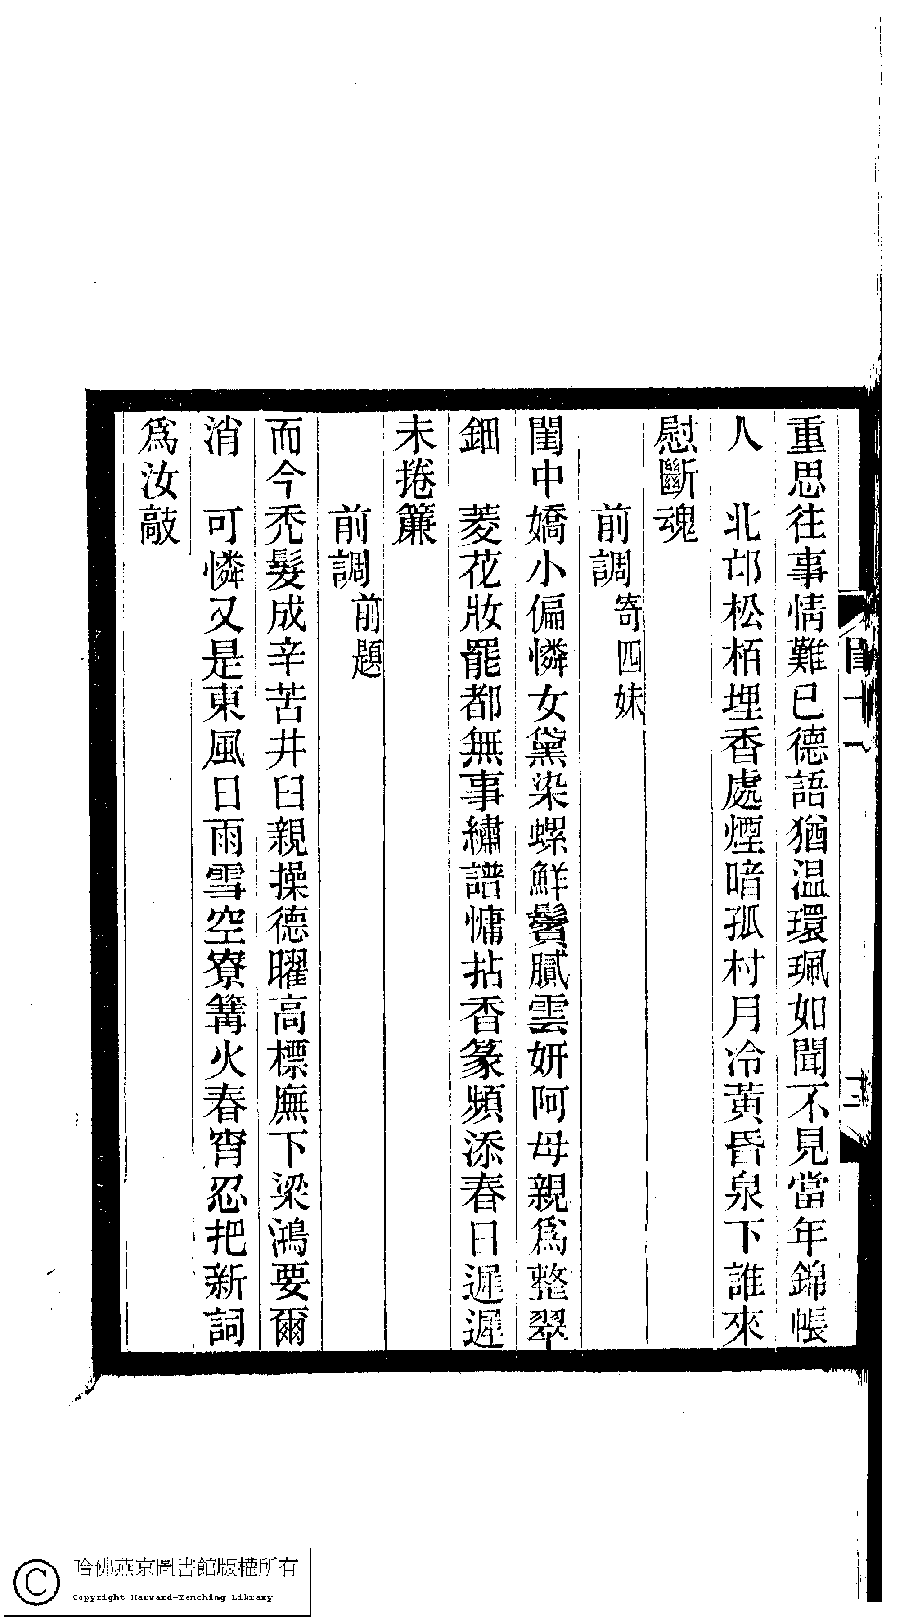 重思往事情難已德語猶温環珮如聞不見當年錦帳
人　北邙松栢埋香處煙暗孤村月冷黃昏泉下誰來
慰斷魂
前調寄四妹
閨中嬌小偏憐女黛染螺鮮鬢膩雲妍阿母親爲整翠
鈿　菱花妝罷都無事繡譜慵拈香篆頻添春日遲遲
未捲簾
前調前題
而今禿髮成辛苦井臼親操德曜高標廡下梁鴻要爾
消　可憐又是東風日雨雪空寮篝火春宵忍把新詞
爲汝敲
哈佛燕京圖書館版權所有
Copyright Harvard-Yenching Library